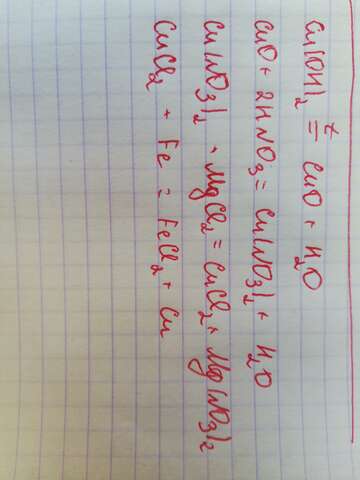 Cu(OH)₂ =ᵗ CuO + H₂O
CuO + 2HNO₃ = Cu(NO₃)₂ + H₂O
Cu(NO₃)₂ + MgCl₂ = CuCl₂ + Mg(NO₃)₂
CuCl₂ + Fe = FeCl₂ + Cu